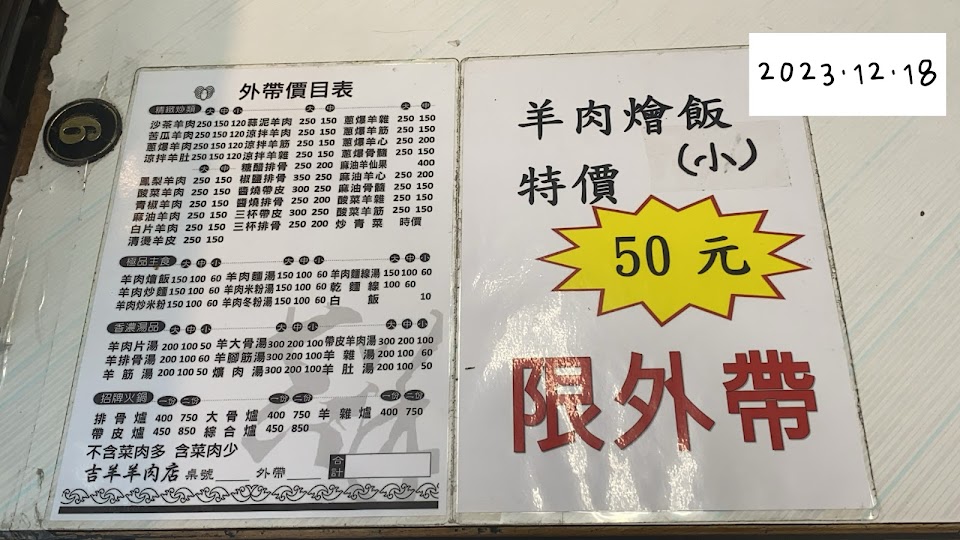 6
外帶價目表
精緻炒類 大 中 小 大 中 大 中
沙茶羊肉 250 150 120 蒜泥羊肉 250 150 蔥爆羊雜 250 150
苦瓜羊肉 250 150 120 涼拌羊肉 250 150 蔥爆羊筋 250 150
蔥爆羊肉 250 150 120 涼拌羊筋 250 150 蔥爆羊心 250 200
涼拌羊肚 250 150 120 涼拌羊雜 250 150 蔥爆骨髓 250 150
大 中 糖醋排骨 250 200 麻油羊仙果 400
鳳梨羊肉 250 150 椒鹽排骨 350 250 麻油羊心 250 200
酸菜羊肉 250 150 醬燒帶皮 300 250 麻油骨髓 250 150
青椒羊肉 250 150 醬燒排骨 250 200 酸菜羊雜 250 150
麻油羊肉 250 150 三杯帶皮 300 250 酸菜羊筋 250 150
白片羊肉 250 150 三杯排骨 250 200 炒青菜 時價
清燙羊皮 250 150
極品主食 大 中 小 大 中 小 大 中 小
羊肉燴飯 150 100 60 羊肉麵湯 150 100 60 羊肉麵線湯 150 100 60
羊肉炒麵 150 100 60 羊肉米粉湯 150 100 60 乾麵線 100 60
羊肉炒米粉 150 100 60 羊肉冬粉湯 150 100 60 白飯 10
香濃湯品 大 中 小 大 中 小 大 中 小
羊肉片湯 200 100 50 羊大骨湯 300 200 100 帶皮羊肉湯 300 200 100
羊排骨湯 200 100 60 羊腳筋湯 300 200 100 羊雜湯 200 100 60
羊筋湯 200 100 50 爌肉湯 300 200 100 羊肚湯 200 100 50
招牌火鍋 一份 二份 一份 二份 一份 二份
排骨爐 400 750 大骨爐 400 750 羊雜爐 400 750
帶皮爐 450 850 綜合爐 450 850
不含菜肉多 含菜肉少
吉羊羊肉店 桌號 外帶 合計
2023.12.18
羊肉燴飯
(小)
特價
50元
限外帶